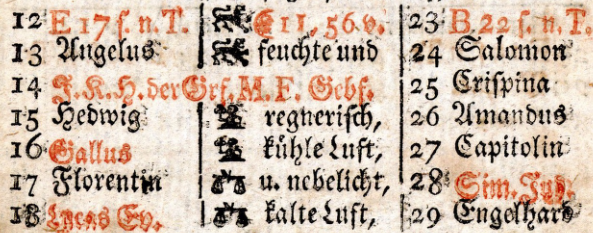 12 E 17 s. n. T. E 11, 56. v. 23 B. 22 s. n. T.
13 Angelus feuchte und 24 Salomon
14 J. K. H. der Grf. M. F. Gebs. 25 Crispina
15 Hedwig regnerisch, 26 Amandus
16 Gallus kühle Luft, 27 Capitolin
17 Florentin u. nebelicht, 28 Sim. Jud.
18 Lucas Ev. kalte Luft, 29 Engelhard